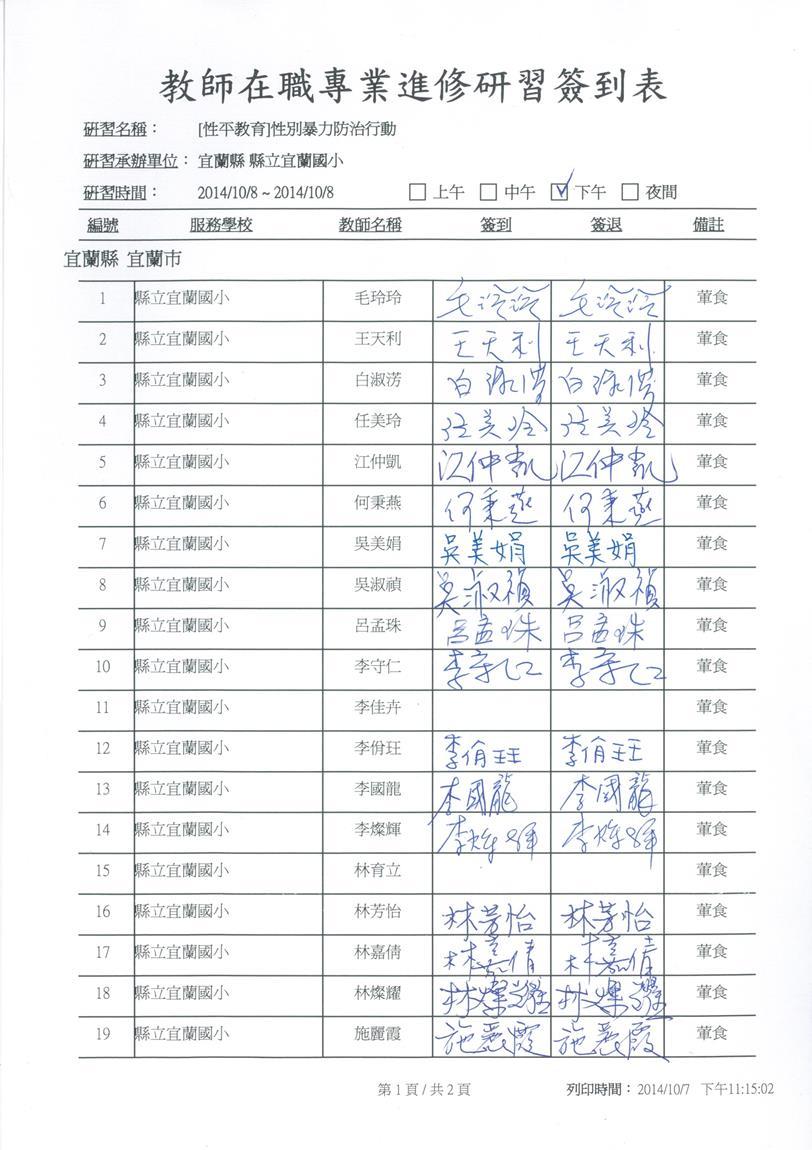 教師在職專業進修研習簽到表
研習名稱： [性平教育]性別暴力防治行動
研習承辦單位： 宜蘭縣 縣立宜蘭國小
研習時間： 2014/10/8 ~ 2014/10/8 □ 上午 □ 中午 ☑ 下午 □ 夜間
編號 服務學校 教師名稱 簽到 簽退 備註
宜蘭縣 宜蘭市
1 縣立宜蘭國小 毛玲玲 毛玲玲 毛玲玲 葷食
2 縣立宜蘭國小 王天利 王天利 王天利 葷食
3 縣立宜蘭國小 白淑淓 白淑淓 白淑淓 葷食
4 縣立宜蘭國小 任美玲 任美玲 任美玲 葷食
5 縣立宜蘭國小 江仲凱 江仲凱 江仲凱 葷食
6 縣立宜蘭國小 何秉燕 何秉燕 何秉燕 葷食
7 縣立宜蘭國小 吳美娟 吳美娟 吳美娟 葷食
8 縣立宜蘭國小 吳淑禎 吳淑禎 吳淑禎 葷食
9 縣立宜蘭國小 呂孟珠 呂孟珠 呂孟珠 葷食
10 縣立宜蘭國小 李守仁 李守仁 李守仁 葷食
11 縣立宜蘭國小 李佳卉 葷食
12 縣立宜蘭國小 李佾玨 李佾玨 李佾玨 葷食
13 縣立宜蘭國小 李國龍 李國龍 李國龍 葷食
14 縣立宜蘭國小 李燦輝 李燦輝 李燦輝 葷食
15 縣立宜蘭國小 林育立 葷食
16 縣立宜蘭國小 林芳怡 林芳怡 林芳怡 葷食
17 縣立宜蘭國小 林嘉倩 林嘉倩 林嘉倩 葷食
18 縣立宜蘭國小 林燦耀 林燦耀 林燦耀 葷食
19 縣立宜蘭國小 施麗霞 施麗霞 施麗霞 葷食
第 1 頁 / 共 2 頁 列印時間： 2014/10/7 下午11:15:02